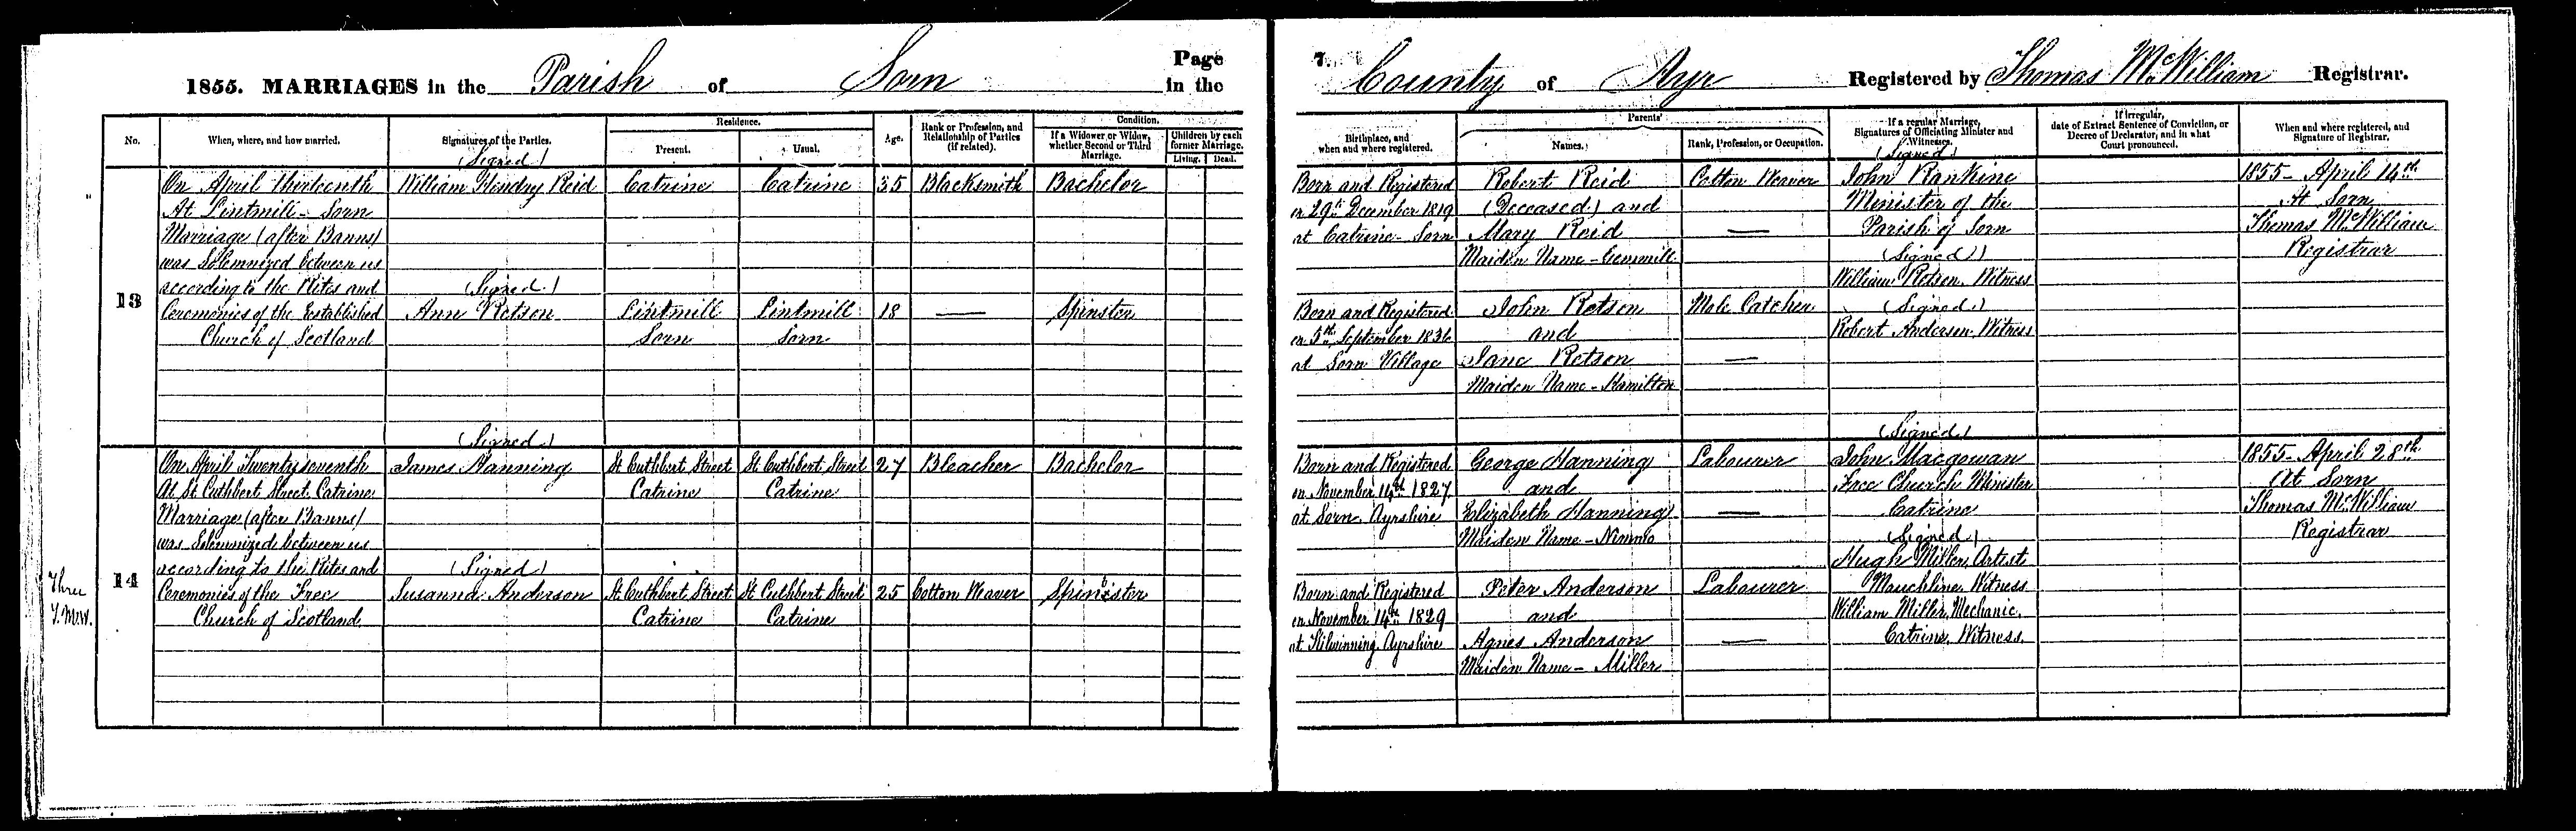 1855. MARRIAGES in the Parish of Sorn Page in the
7. County of Ayr Registered by Thomas McWilliam Registrar.
No.
When, where, and how married.
Signatures of the Parties.
Residence.
Present.
Usual.
Age.
Rank or Profession, and Relationship of Parties (if related).
Condition.
If a Widower or Widow, whether Second or Third Marriage.
Children by each former Marriage.
Living. Dead.
Birthplace, and when and where registered.
Parents'
Names.
Rank, Profession, or Occupation.
If a regular Marriage, Signatures of Officiating Minister and Witnesses.
If irregular, date of Extract Sentence of Conviction, or Decree of Declarator, and in what Court pronounced.
When and where registered, and Signature of Registrar.
13
On April thirteenth
At Lintmill - Sorn
Marriage (after Banns)
was Solemnized between us
according to the Rites and
Ceremonies of the Established
Church of Scotland
(Signed)
William Hendry Reid
(Signed)
Ann Retson
Catrine
Lintmill
Sorn
Catrine
Lintmill
Sorn
35
18
Blacksmith
Bachelor
Spinster
Born and Registered
on 29th December 1819
at Catrine - Sorn
Born and Registered
on 5th September 1836
at Sorn Village
Robert Reid
(Deceased) and
Mary Reid
Maiden Name - Gemmill
John Retson
and
Jane Retson
Maiden Name - Hamilton
Cotton Weaver
Mole Catcher
(Signed)
John Rankine
Minister of the
Parish of Sorn
(Signed)
William Retson, Witness
(Signed)
Robert Anderson, Witness
1855 - April 14th
At Sorn
Thomas McWilliam
Registrar
Three
T. McW.
14
On April Twenty seventh
At St Cuthbert Street, Catrine
Marriage (after Banns)
was Solemnized between us
according to the Rites and
Ceremonies of the Free
Church of Scotland
(Signed)
James Hanning
(Signed)
Susanna Anderson
St Cuthbert Street
Catrine
St Cuthbert Street
Catrine
St Cuthbert Street
Catrine
St Cuthbert Street
Catrine
27
25
Bleacher
Cotton Weaver
Bachelor
Spinster
Born and Registered
on November 14th 1827
at Sorn, Ayrshire
Born and Registered
on November 14th 1829
at Kilwinning, Ayrshire
George Hanning
and
Elizabeth Hanning
Maiden Name - Nimmo
Peter Anderson
and
Agnes Anderson
Maiden Name - Miller
Labourer
Labourer
(Signed)
John Macgowan
Free Church Minister
Catrine
(Signed)
Hugh Miller, Artist
Mauchline, Witness
William Miller, Mechanic,
Catrine, Witness.
1855 - April 28th
At Sorn
Thomas McWilliam
Registrar